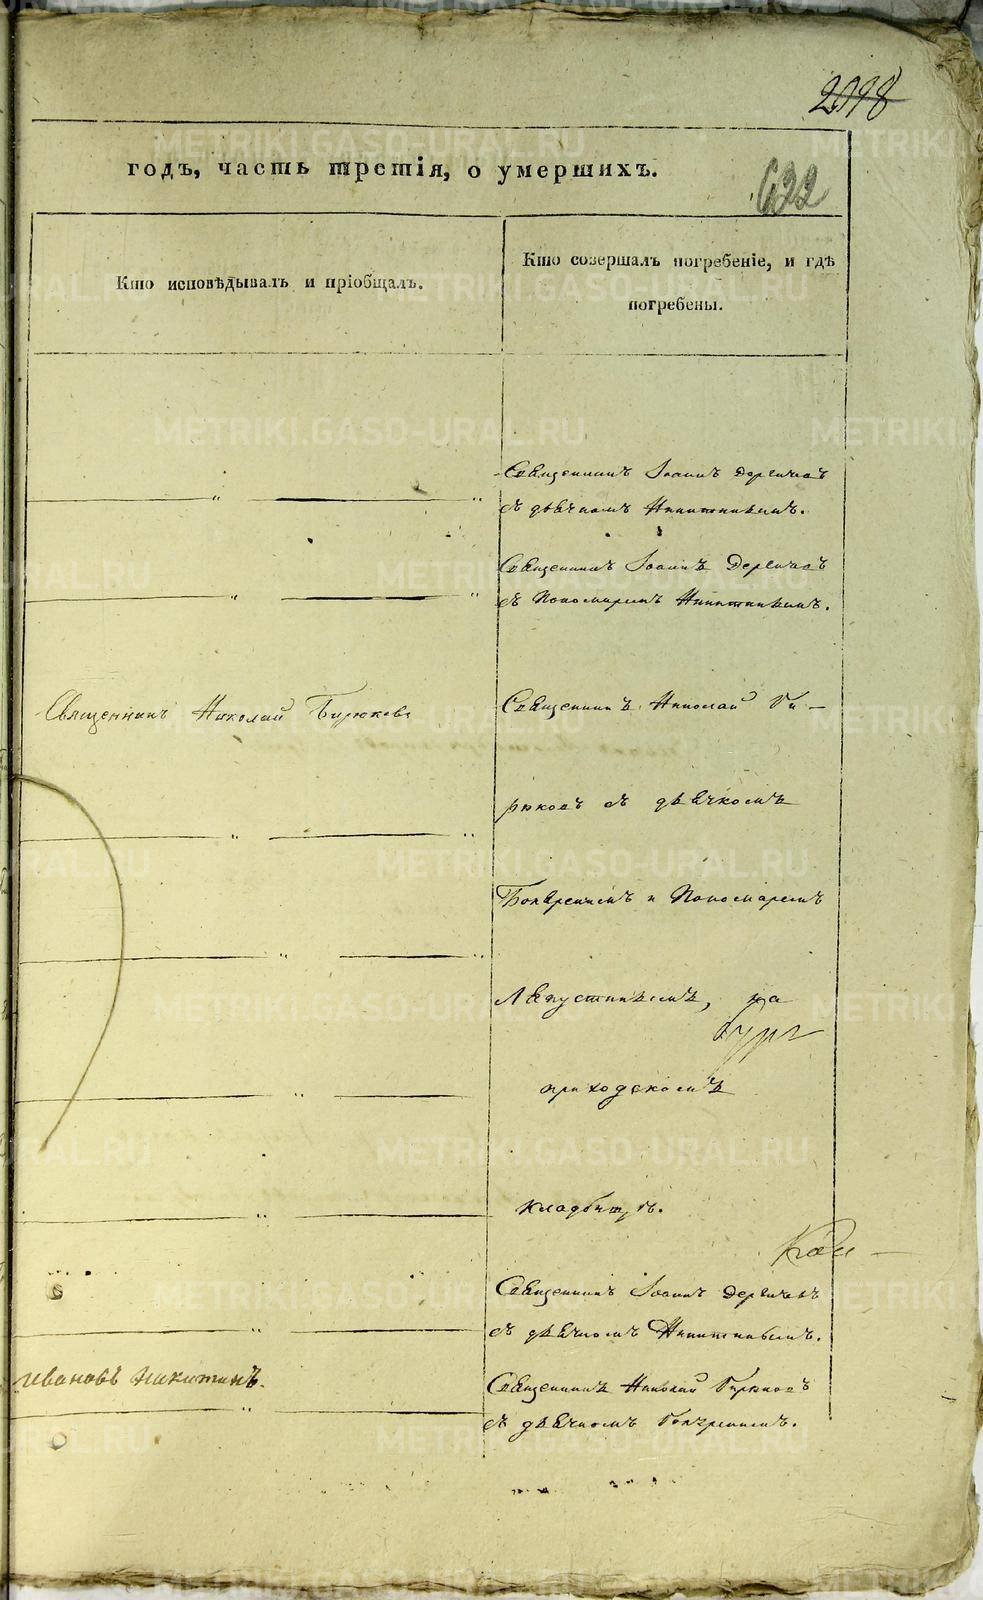 2098
годъ, часть третія, о умершихъ.
622
Кто исповѣдывалъ и пріобщалъ.
Кто совершалъ погребеніе, и гдѣ
погребены.
Священникъ Іоаннъ
съ дьячкомъ Никитинымъ.
Священникъ Іоаннъ
съ Пономаремъ Никитинымъ.
Священникъ Николай Бирюковъ
Священникъ Николай Би-
рюковъ съ дьячкомъ
и Пономаремъ
на
приходскомъ
кладбищѣ.
Священникъ Іоаннъ
съ дьячкомъ Никитинымъ.
Ивановъ Никитинъ.
Священникъ Николай Бирюковъ
съ дьячкомъ
METRIKI.GASO-URAL.RU